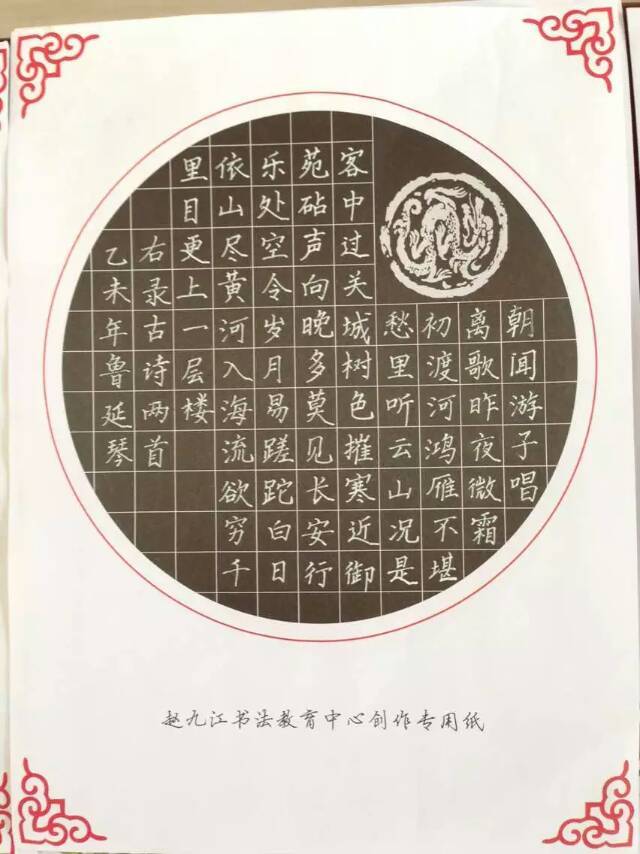 朝闻游子唱
离歌昨夜微霜
初渡河鸿雁不堪
愁里听云山况是
客中过关城树色摧寒近御
苑砧声向晚多莫见长安行
乐处空令岁月易蹉跎白日
依山尽黄河入海流欲穷千
里目更上一层楼
右录古诗两首
乙未年鲁延琴
赵九江书法教育中心创作专用纸